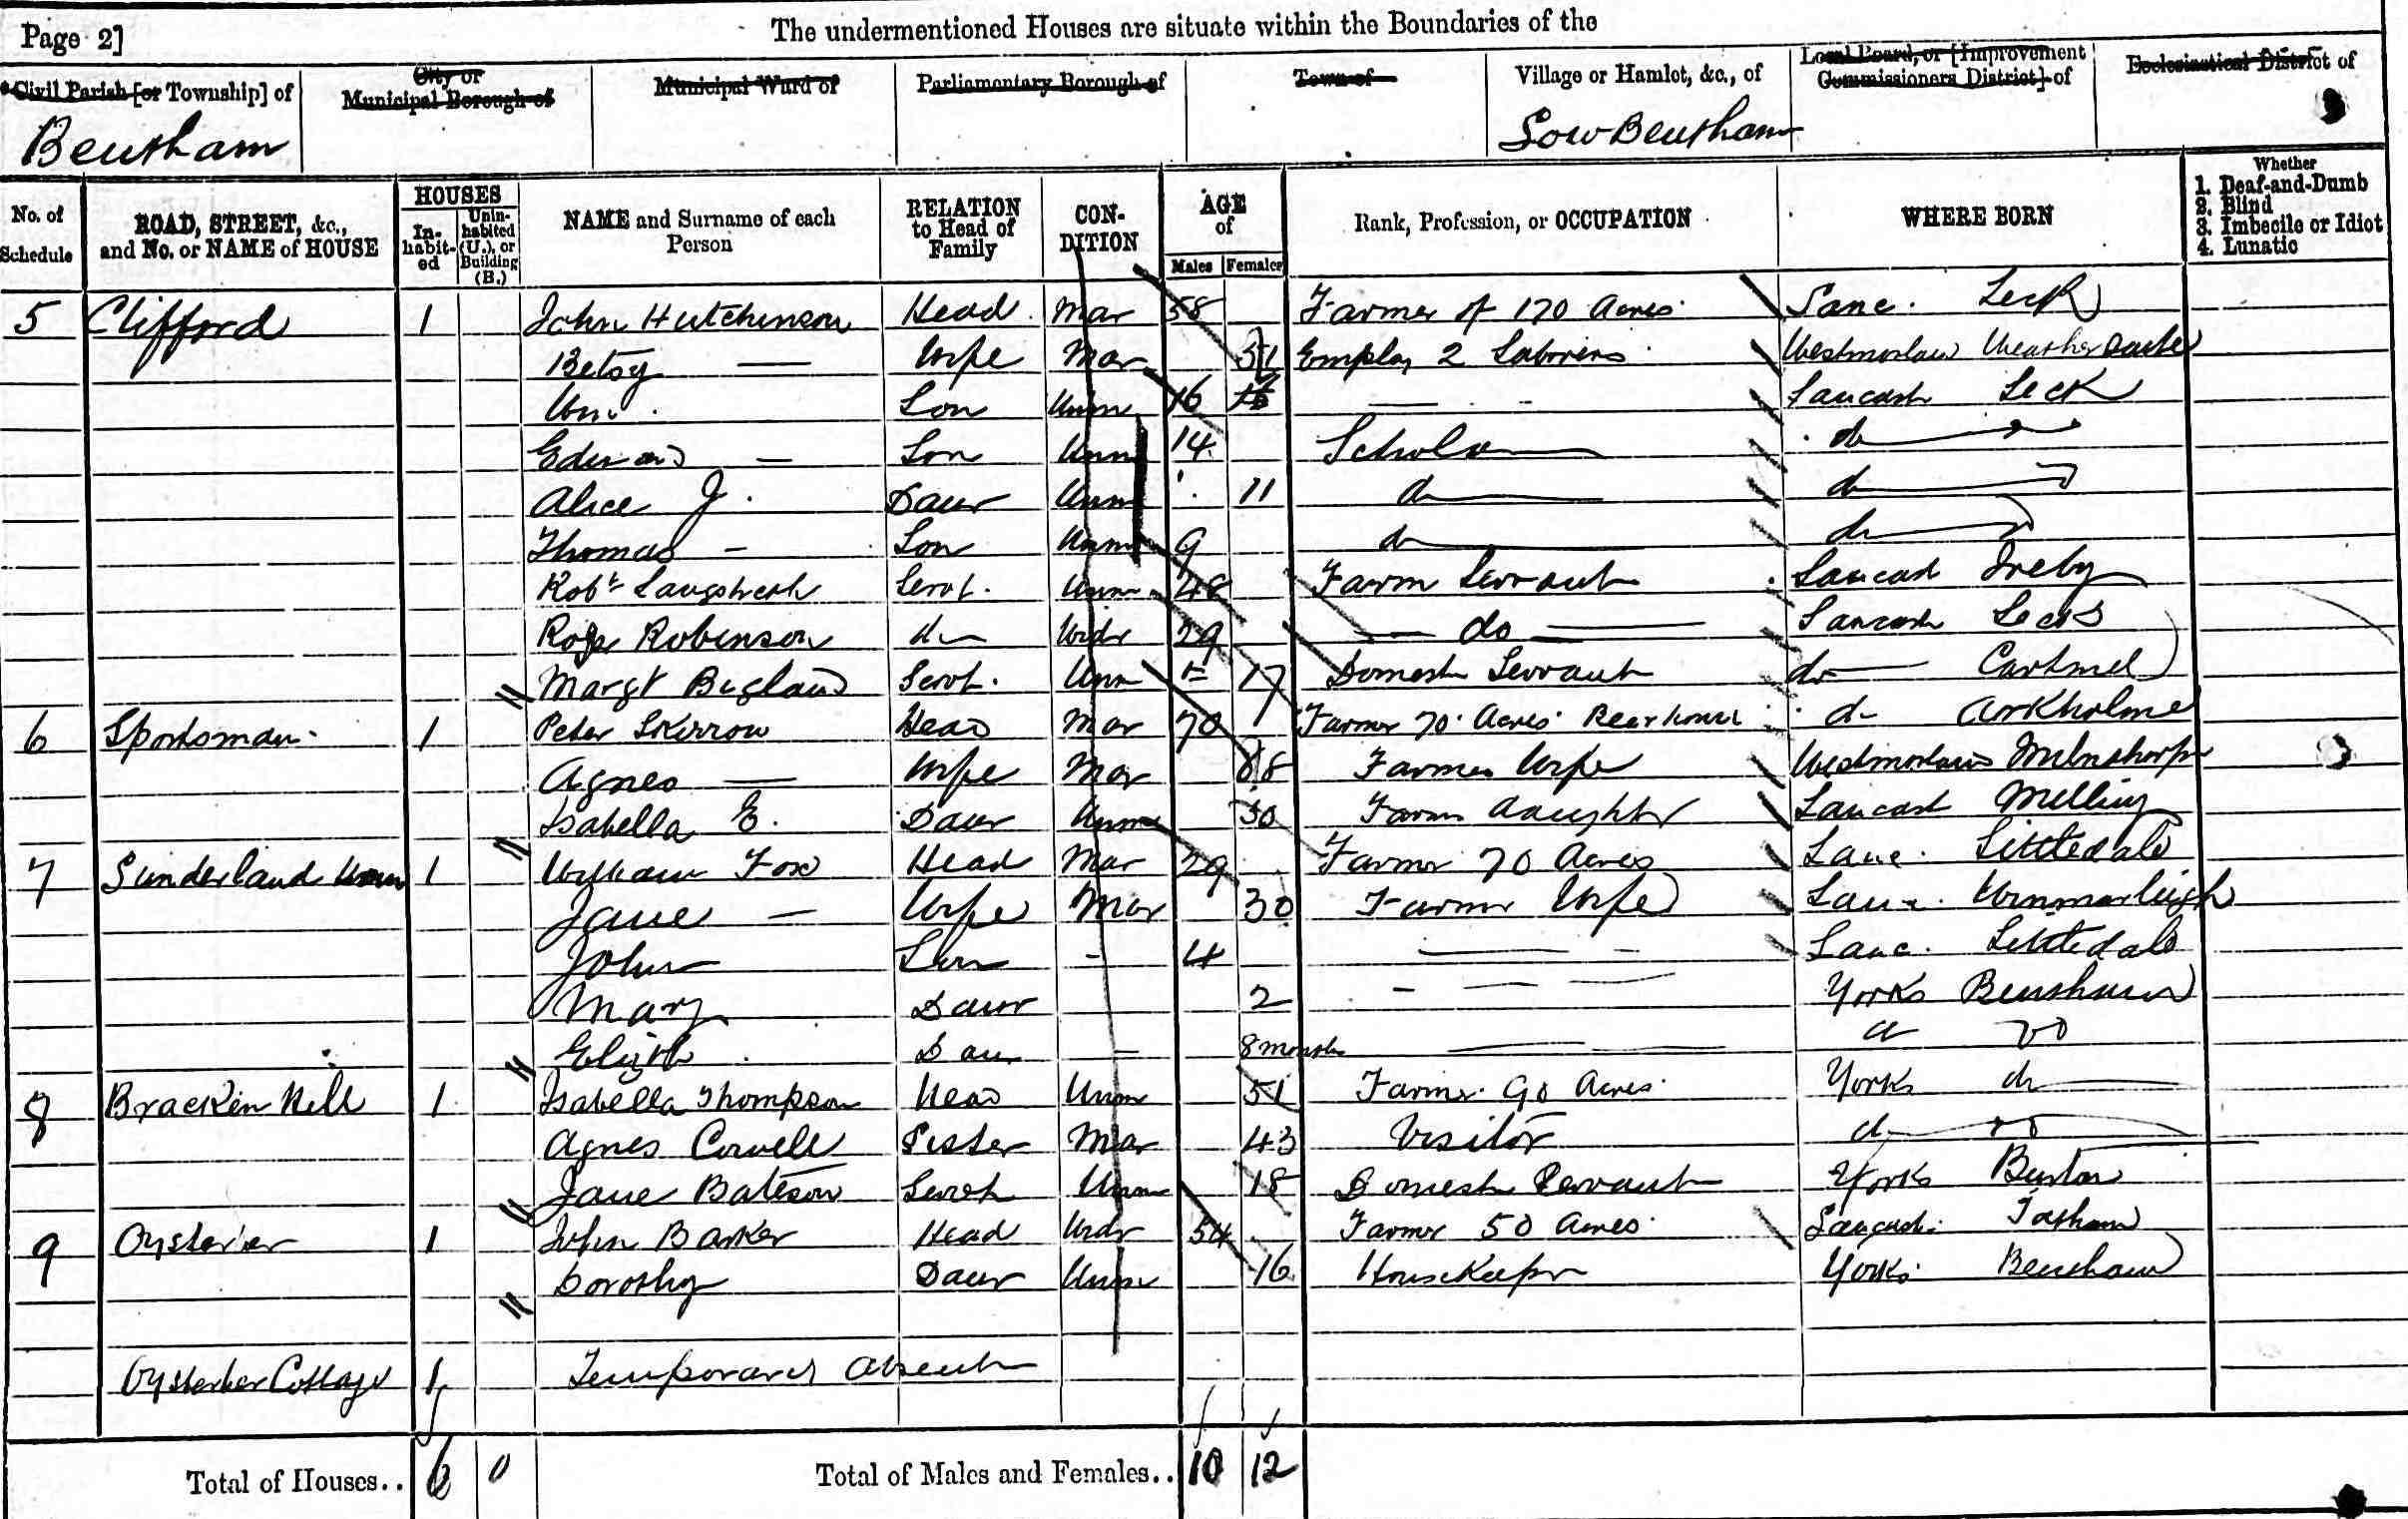 Page 2]
The undermentioned Houses are situate within the Boundaries of the
Civil Parish [or Township] of
City or Municipal Borough of
Municipal Ward of
Parliamentary Borough of
Town of
Village or Hamlet, &c., of
Local Board, or [Improvement Commissioners District] of
Ecclesiastical District of
Bentham
Low Bentham
No. of Schedule
ROAD, STREET, &c., and No. or NAME of HOUSE
HOUSES
In-habit-ed
Unin-habited (U.), or Building (B.)
NAME and Surname of each Person
RELATION to Head of Family
CON-DITION
AGE of
Males
Females
Rank, Profession, or OCCUPATION
WHERE BORN
Whether
1. Deaf-and-Dumb
2. Blind
3. Imbecile or Idiot
4. Lunatic
5 Clifford 1 John Hutchinson Head Mar 58 Farmer of 170 Acres Lanc. Leck
Betsy — Wife Mar 51 Employ 2 Laborers
Wm. Son Unm 16 Lancash Leck
Edward — Son Unm 14 Scholar do
Alice J. Daur Unm 11 do do
Thomas — Son Unm 9 do do
Robt Servt. Unm 48 Farm Servant Lancash Ireby
Robinson do Widr 29 do Lancash
Margt Servt. Unm 17 Domestic Servant do Cartmel
6 Sportsman 1 Peter Skirrow Head Mar 70 Farmer 70 Acres do Arkholme
Agnes — Wife Mar Farmers Wife Westmorland Milnthorpe
Isabella E. Daur Unm 30 Farm daughter Lancash Melling
7 Sunderland 1 William Fox Head Mar 29 Farmer 70 Acres Lanc. Littledale
Jane — Wife Mar 30 Farmer Wife Lanc. Winmarleigh
John Son - 4 Lanc. Littledale
Mary Daur 2 Yorks Bentham
Elizth Daur 8 months do do
8 Bracken Hill 1 Isabella Thompson Head Unm 51 Farmer 90 Acres Yorks do
Agnes Sister Mar 43 Visitor do do
Jane Bateson Servt Unm 18 Domestic Servant Yorks Burton
9 Oysterber 1 John Barker Head Widr 54 Farmer 50 Acres Lancash. Tatham
Dorothy Daur Unm 16 Housekeeper Yorks Bentham
Oysterber Cottage 1 Temporary Absent
Total of Houses.. 6 0 Total of Males and Females.. 10 12